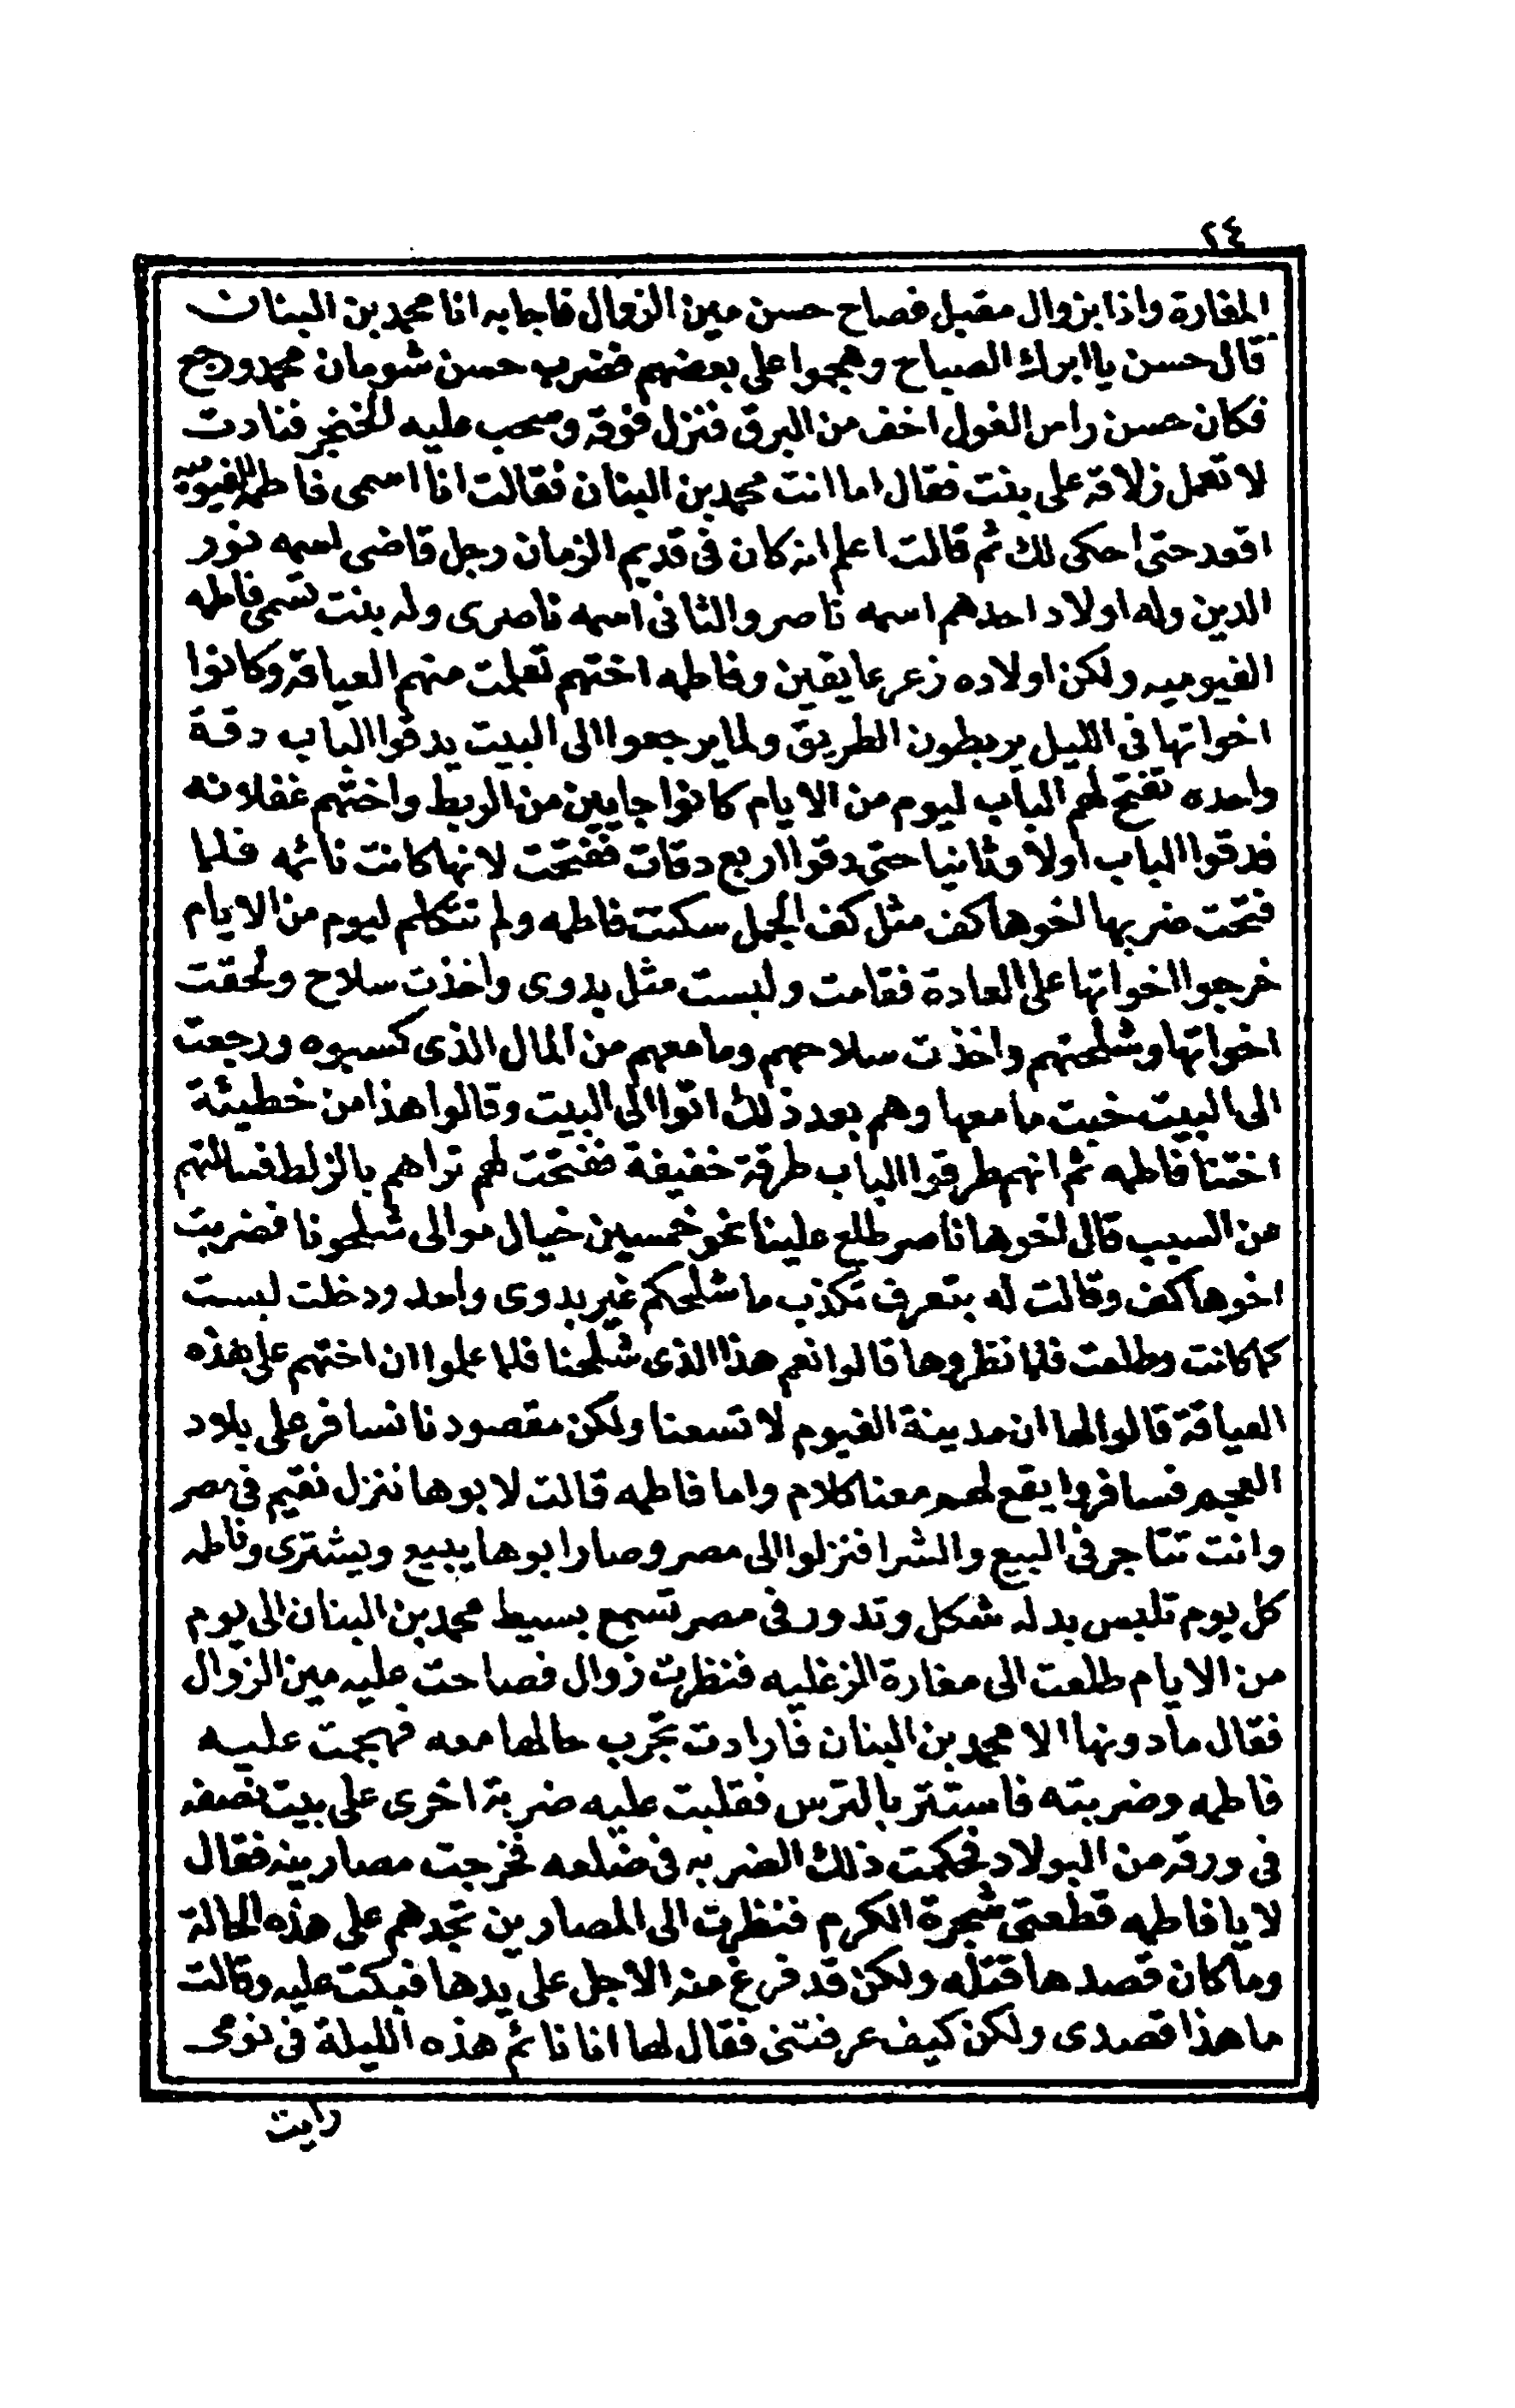 ٢٤
المغارة واذا بزوال مقبل فصاح حسن مين الزوال فاجابه انا محمد بن البنان
قال حسن يا ابرك الصباح وهجموا على بعضهم فضرب حسن شومان محمد ودحج
فكان حسن راس الغول اخف من البرق فنزل فوقه وسحب عليه الخنجر فنادت
لا تعمل زلاقة على بنت فقال اما انت محمد بن البنان فقالت انا اسمى فاطمة الفيوميه
اقعد حتى احكى لك ثم قالت اعلم انه كان فى قديم الزمان رجل قاضى اسمه نور
الدين وله اولاد احدهم اسمه ناصر والثانى اسمه ناصرى وله بنت تسمى فاطمه
الفيوميه ولكن اولاده زعر عايقين وفاطمه اختهم تعلمت منهم العياقه وكانوا
اخواتها فى الليل يربطون الطريق ولما يرجعوا الى البيت يدقوا الباب دقة
واحده تفتح لهم الباب ليوم من الايام كانوا جايين من الربط واختهم غفلانه
فدقوا الباب اولا وثانيا حتى دقوا اربع دقات ففتحت لانها كانت نائمه فلما
فتحت ضربها اخوها كف مثل كف الجمل سكتت فاطمه ولم تتكلم ليوم من الايام
خرجوا اخواتها على العادة فقامت ولبست مثل بدوى واخذت سلاح ولحقت
اخواتها وشلحتهم واخذت سلاحهم وما معهم من المال الذى كسبوه ورجعت
الى البيت خبت ما معها وهم بعد ذلك اتوا الى البيت وقالوا هذا من خطيئة
اختنا فاطمه ثم انهم طرقوا الباب طرقة خفيفة ففتحت لهم تراهم بالزلط فسالتهم
عن السبب قال اخوها ناصر طلع علينا نحو خمسين خيال موالى شلحونا فضربت
اخوها كف وقالت له بتعرف تكذب ما شلحكم غير بدوى واحد ودخلت لبست
كما كانت وطلعت فلما نظروها قالوا نعم هذا الذى شلحنا فلما علموا ان اختهم على هذه
العياقة قالوا لها ان مدينة الفيوم لا تسعنا ولكن مقصودنا نسافر على بلاد
العجم فسافروا يقع لهم معنا كلام واما فاطمه قالت لابوها ننزل نقيم فى مصر
وانت تتاجر فى البيع والشرا فنزلوا الى مصر وصار ابوها يبيع ويشترى وفاطمه
كل يوم تلبس بدله شكل وتدور فى مصر تسمع بسيط محمد بن البنان الى يوم
من الايام طلعت الى مغارة الزغليه فنظرت زوال فصاحت عليه مين الزوال
فقال مادونها الا محمد بن البنان فارادت تجرب حالها معه فهجمت عليه
فاطمه وضربته فاستتر بالترس فقلبت عليه ضربة اخرى على بيت نصفه
فى ورقه من البولاد فحكمت ذلك الضربه فى ضلعه فخرجت مصارينه فقال
لا يا فاطمه قطعتى شجرة الكرم فنظرت الى المصارين تجدهم على هذه الحالة
وما كان قصدها قتله ولكن قد فرغ منه الاجل على يدها فبكت عليه وقالت
ما هذا قصدى ولكن كيف عرفتنى فقال لها انا نائم هذه الليلة فى نومى
رايت